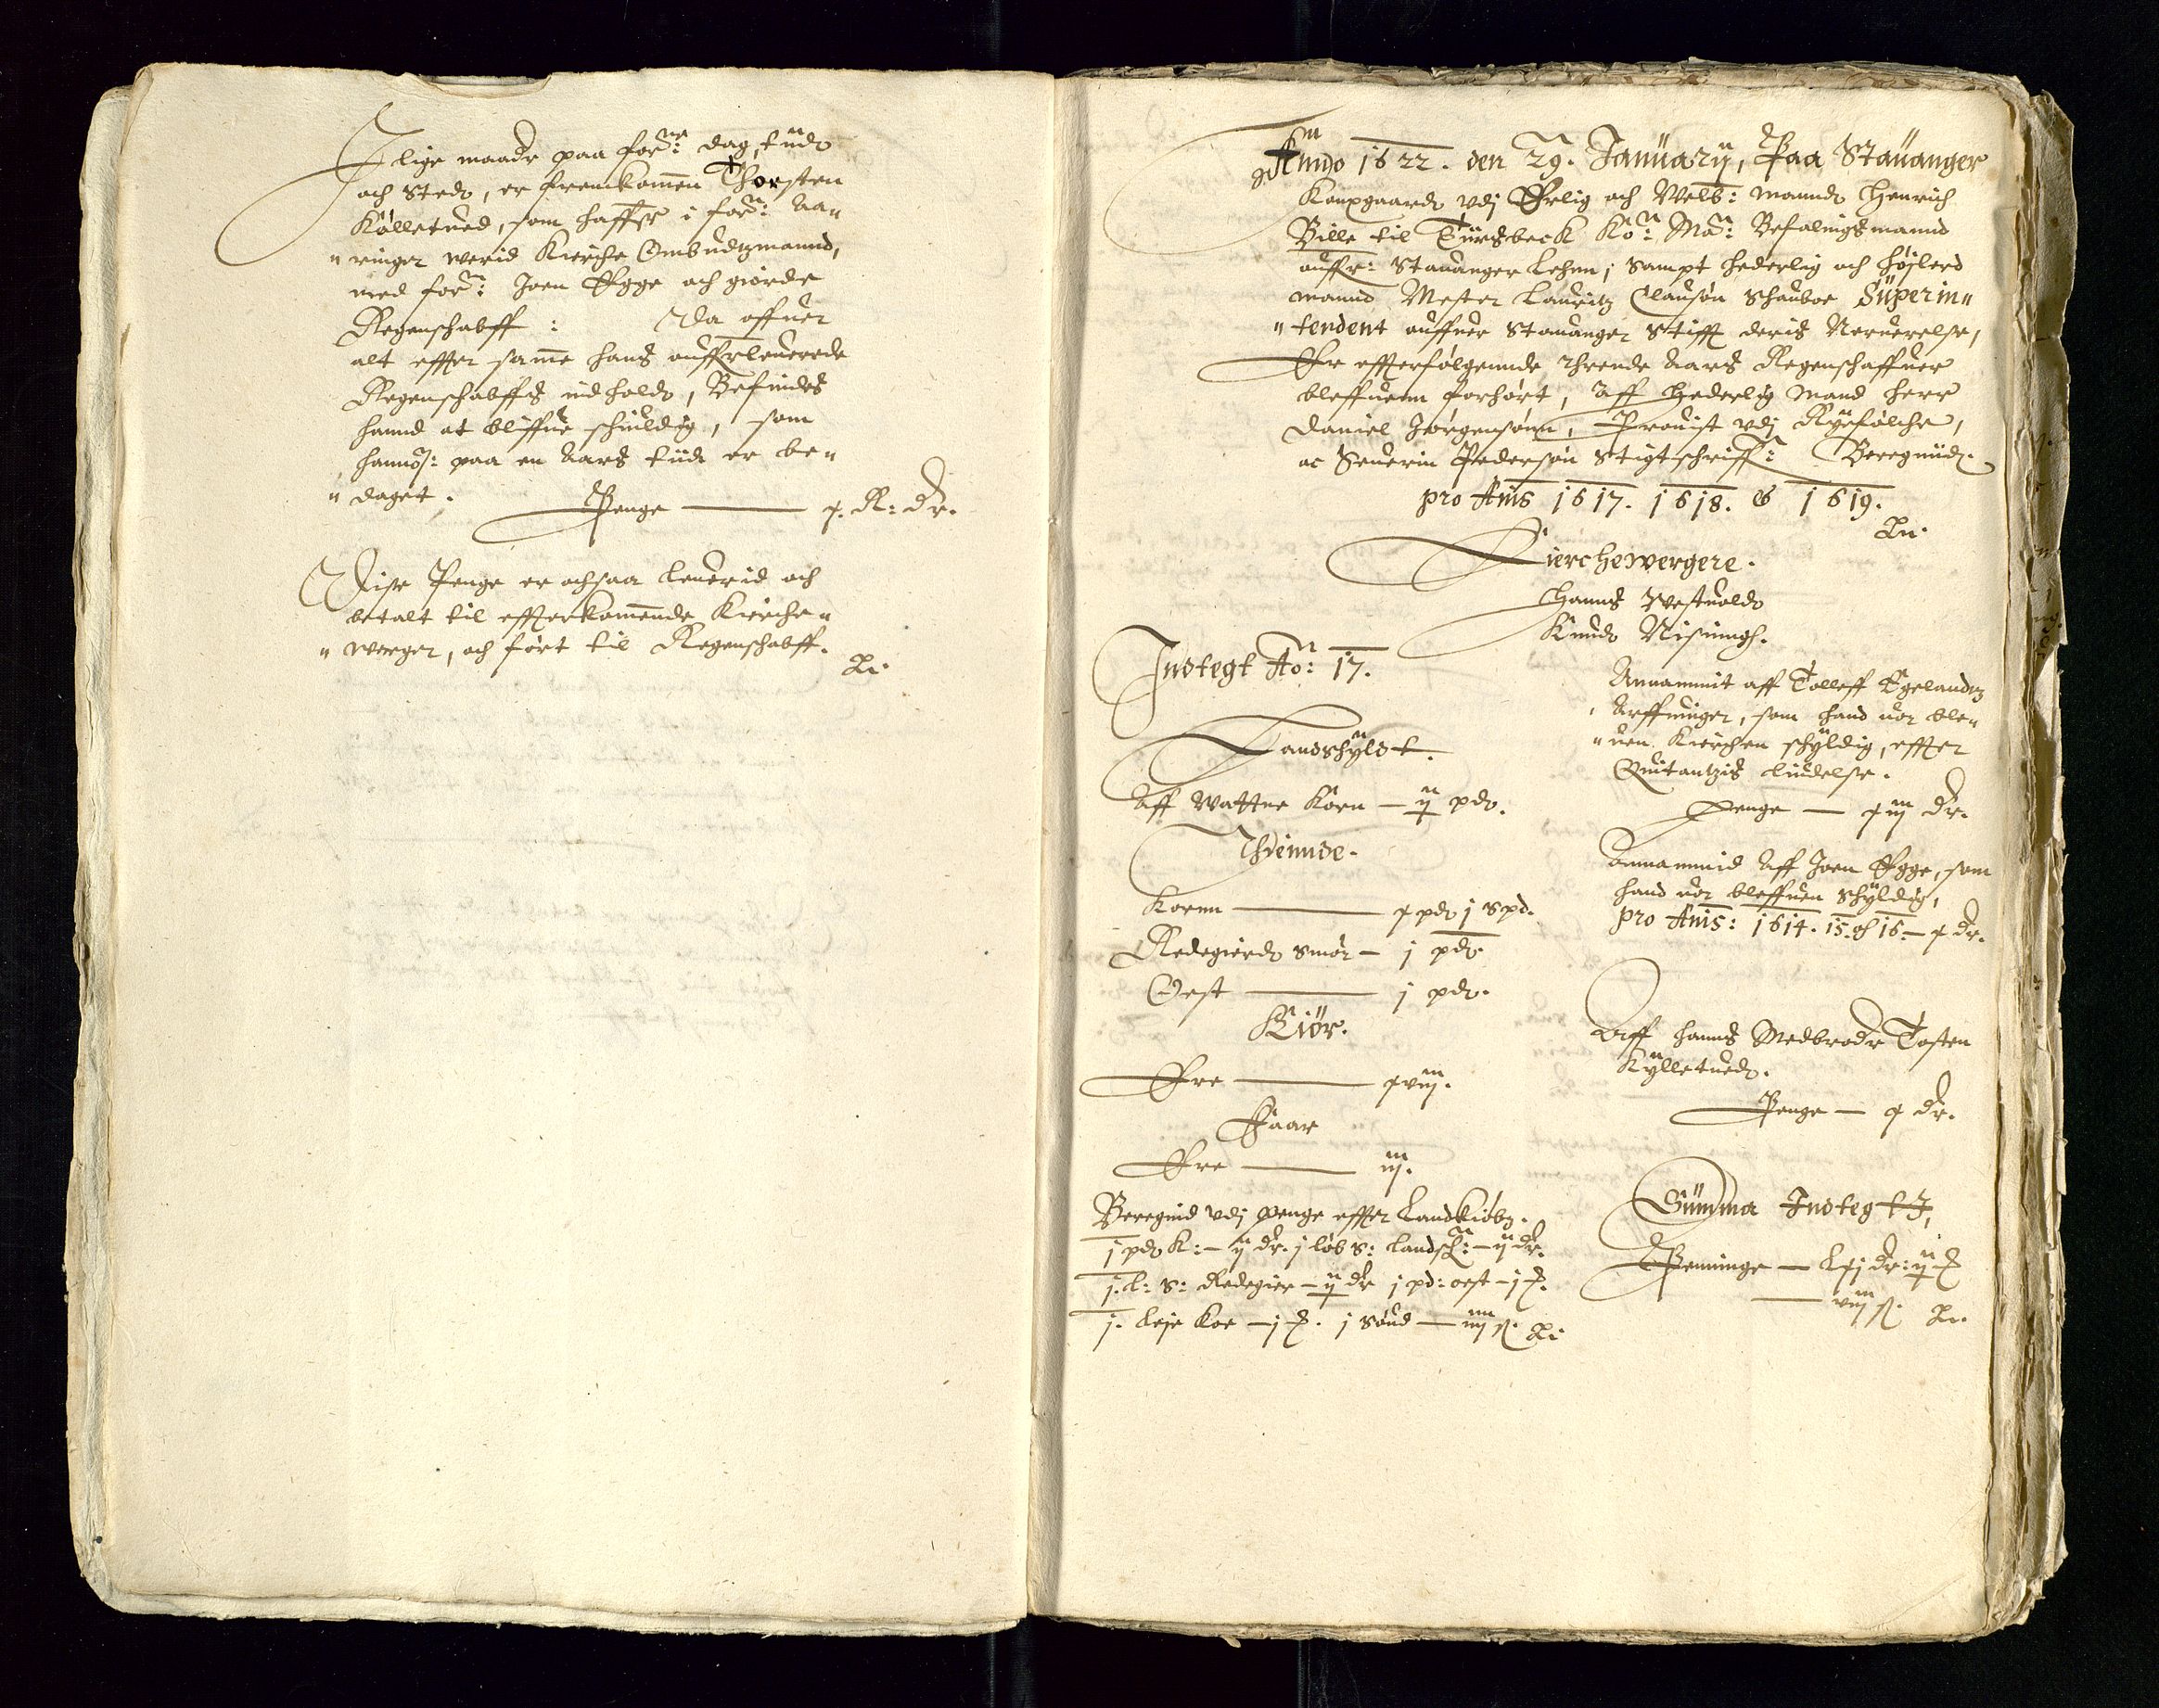 I lige maade paa forne: dag, tiidt
och sted, er fremkommen Thorsten
Kølletued, som haffr i forn: Aa„
„ ringer werid Kierche Ombudtzmannd,
med forn: Joen Egge och giorde
Regenschabff : Da effter
alt effter samme hans offuerleuerede
Regenschabffs indhold, Befindes
hannd at bliffue schuldig, som
paa en Aars tiid er be„
„ daget.
Penge — x. R: dr.
Disse Penge er ochsaa leuerid och
betalt til effterkommende Kierche„
„ werger, och ført til Regenschabff.
Anno 1622. den 29. Januarij, Paa Stauanger
Kongsgaard vdj Erlig och Velb: mannds Henrich
Bille til Tirsbeck Ko: Ma: Befalingsmannd
offr: Stauanger Lehn, Sampt hederlig och højlerd
mannd Mester Lauritz Clausøn Schauboe Superin„
„ tendent offuer Stauanger Stifft deris Neruerelse,
Er effterfølgennde thrende Aars Regenschaffuer
bleffuenn forhørt, Aff Hederlig Mand Herr
Daniel Jørgensønn, Prouist vdj Ryefølche,
oc Seuerin Pedersøn Stigtschriff: Beregnid.
pro Anis 1617. 1618. & 1619.
Kierchewergere.
Hanns Westuold
Knud Nisinngh.
Indtegt Ao: 17.
Landschyldt.
Aff Wattne Korn — ij pd.
Thiennde.
Kornn — x pd j spd.
Redegierd Smør — j pd.
Oest — j pd.
Kiør.
Ere — xviij.
Faar
Ere — iij.
Beregnid vdj penge effter Landkiøb.
j pd K: — ij dr. j løb s: Landsch: — ij dr.
j. l: s: Redegier — ij dr j pd: oest — j
j. leje Koe — j j Soud — iiij ß.
Annammit aff Tolleff Egelandtz
Arffuinger, som hand vor ble„
„ uen Kierchen schyldig, effter
Quitantzis liudelse.
Penge — xiij dr.
Annammid Aff Joen Egge, som
hand vor bleffuen schyldig,
pro Anis: 1614. 15. och 16. — x dr.
Aff hanns Medbrodr Tosten
Kylletued.
Penge — x dr.
Summa Indtegt,
Penninge — Lxj dr: ij
— viij ß.